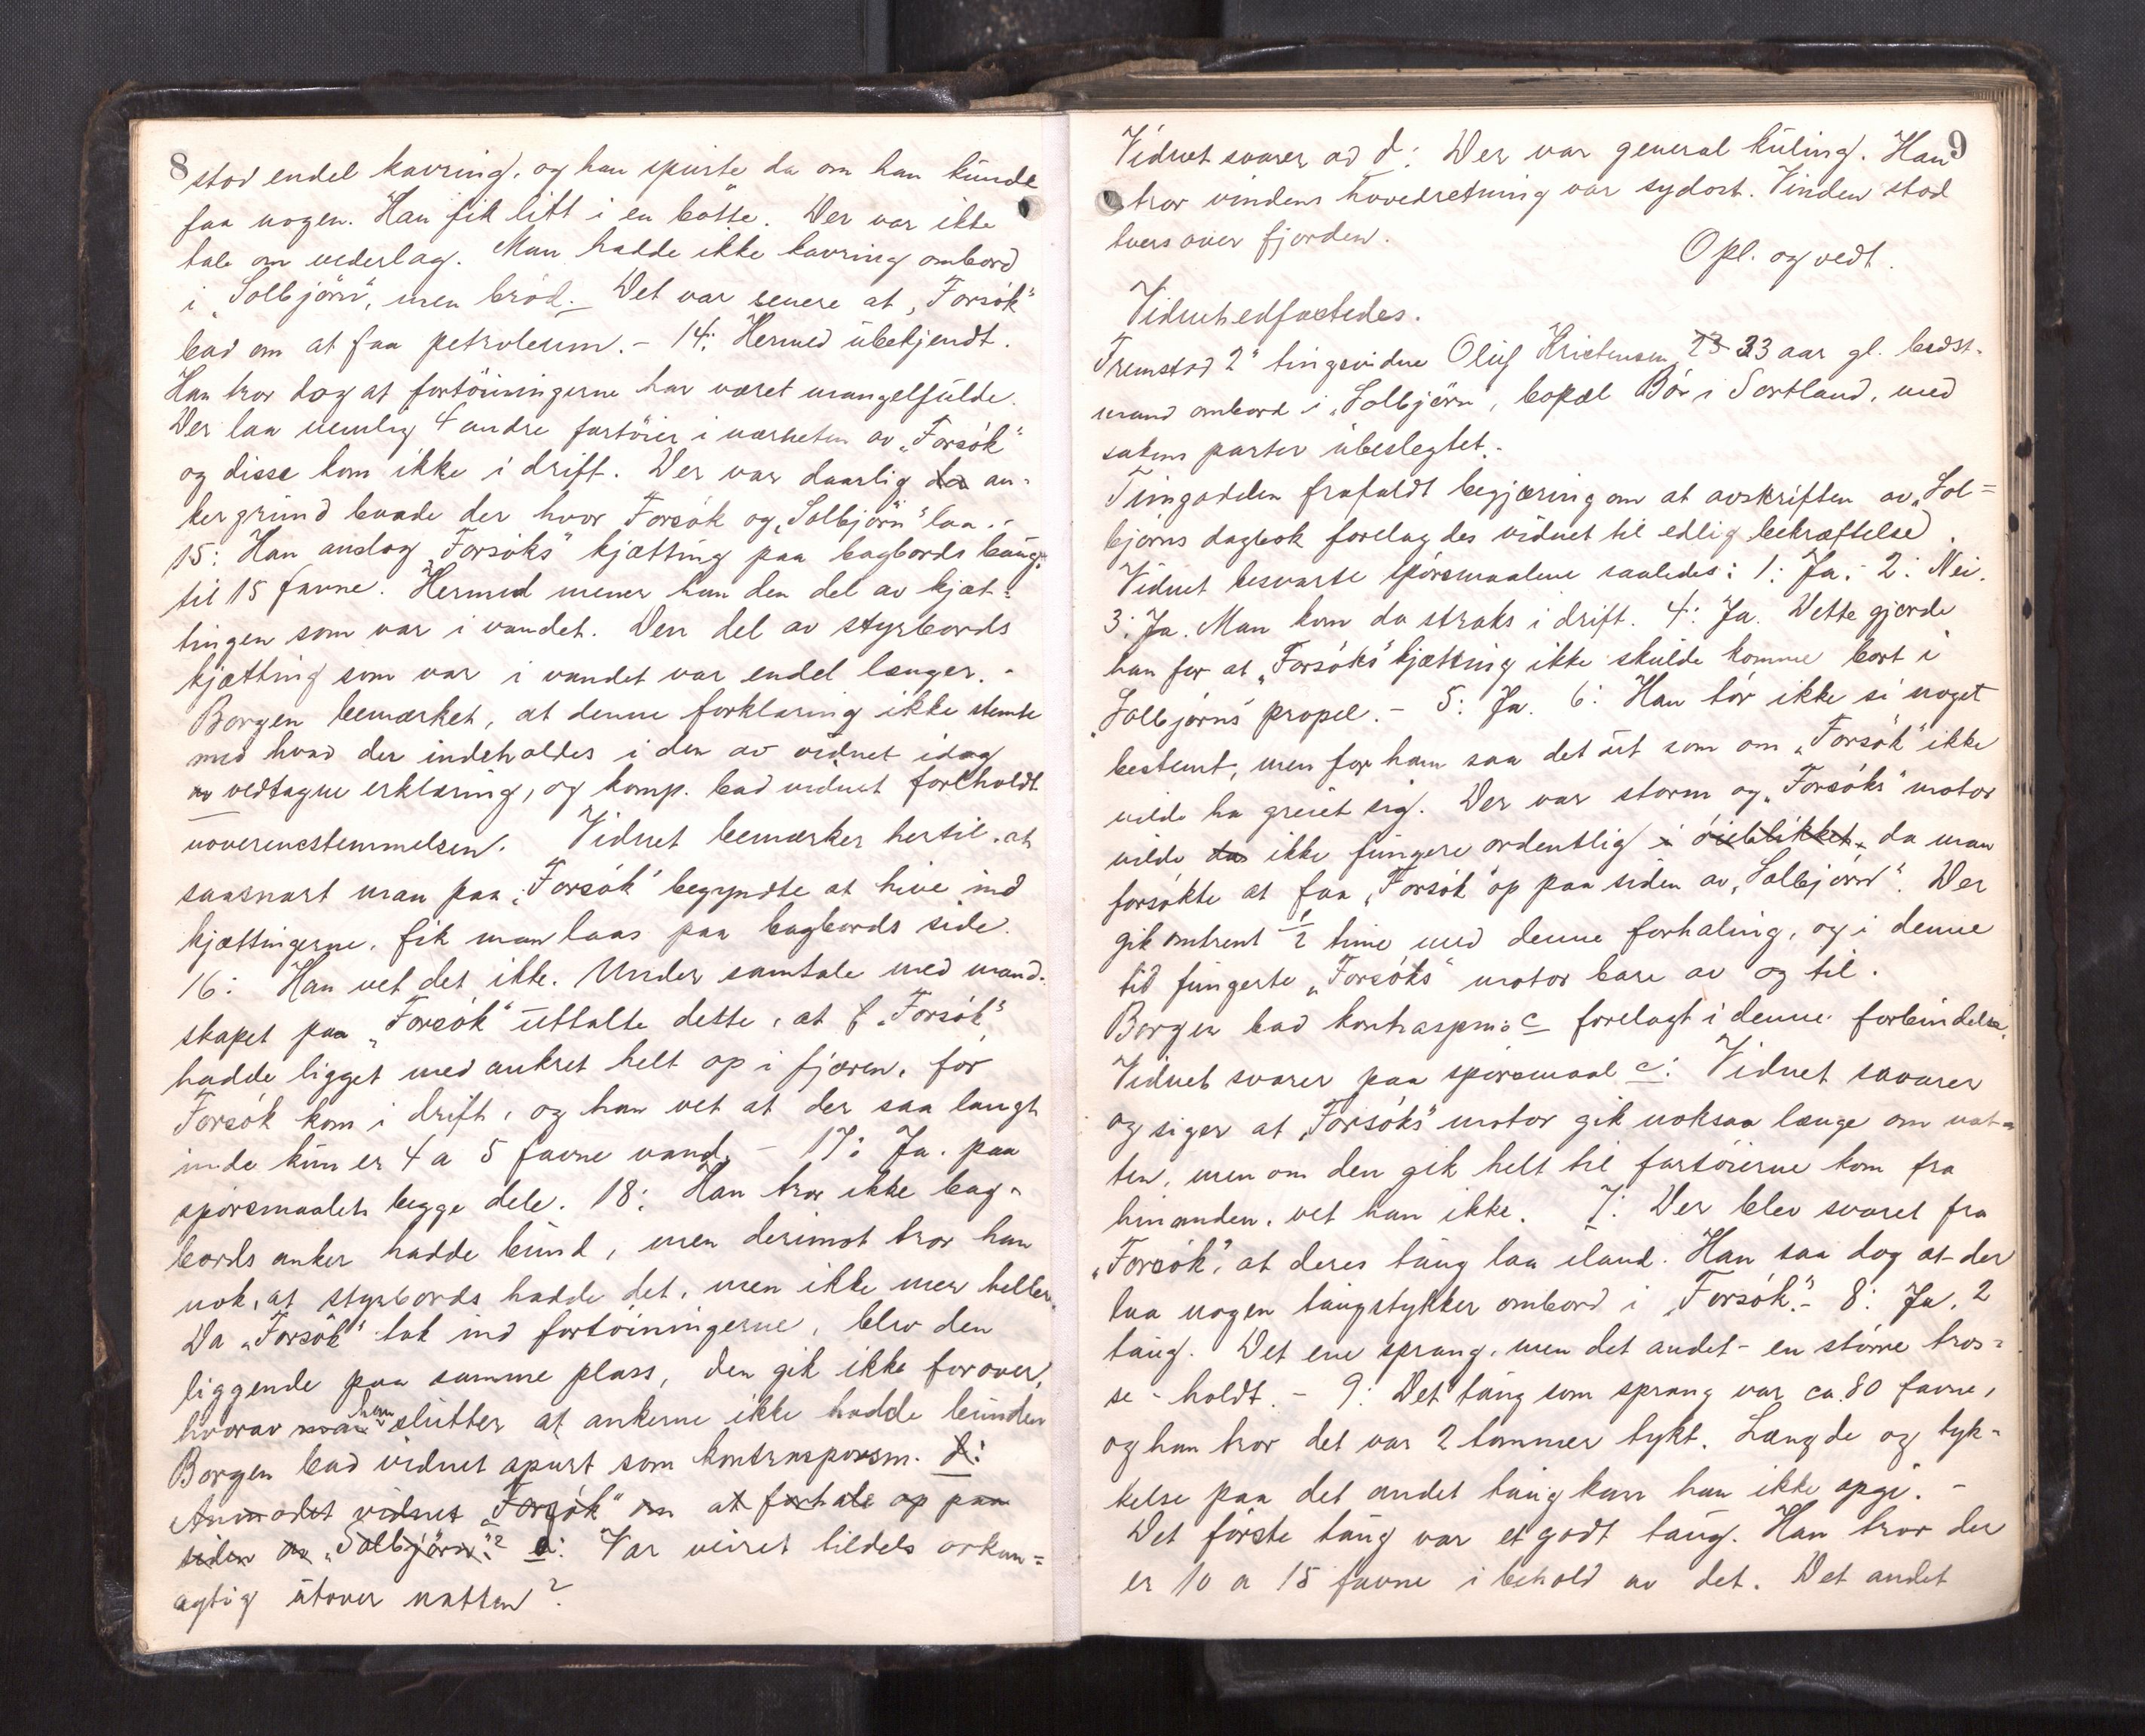 8
stod endel kavring, og han spurte da om han kunde
faa nogen. Han fik litt i en bøtte. Der var ikke
tale om vederlag. Man hadde ikke kavring ombord
i „Solbjörn", men bröd. – Det var senere at „Forsök"
bad om at faa petroleum. – 14: Hermed ubekjendt.
Han tror dog at fortöiningerne har været mangelfulde.
Der laa nemlig 4 andre fartöier i nærheten av „Forsök"
og disse kom ikke i drift. Der var daarlig da an-
kergrund baade der hvor Forsök og „Solbjörn" laa. –
15: Han andog „Forsöks" kjætting paa bagbords baug
til 15 favne. Hermed mener han den del av kjæt-
tingen som var i vandet. Den del av styrbords
kjætting som var i vandet var endel længer. –
Borgen bemærket, at denne forklaring ikke stemte
med hvad der indeholdes i den av vidnet idag
av vedtagne erklæring, og komp. bad vidnet foreholdt
uoverenstemmelsen. Vidnet bemærker hertil, at
saasnart man paa „Forsök" begyndte at hive ind
kjættingerne, fik man laas paa bagbords side.
16: Han vet det ikke. Under samtale med mand-
skapet paa „Forsök" uttalte dette, at f „Forsök"
hadde ligget med ankret helt op i fjæren, för
Forsök kom i drift, og han vet at der saa langt
inde kun er 4 a 5 favne vand. – 17: Ja. paa
spörsmaalets begge dele. 18: Han tror ikke bag-
bords anker hadde bund, men derimot tror han
nok, at styrbords hadde det, men ikke mer heller.
Da „Forsök" tok ind fortöiningerne, blev den
liggende paa samme plass, den gik ikke forover,
hvorav man han slutter at ankerne ikke hadde bunden
Borgen bad vidnet spurt som kontraspørsm. d:
Anmodet vidnet „Forsök" om at forhale op paa
siden av „Solbjörn"? d: Var veiret tildels orkan-
agtig utover natten?
9
Vidnet svarer ad d: Der var general kuling. Han
tror vindens hovedretning var sydost. Vinden stod
tvers over fjorden.
Opl. og vedt.
Vidnet edfæstedes.
Fremstod 2' tingsvidne Oluf Kristensen, 23 33 aar gl. bedst-
mand ombord i „Solbjörn", bopæl Bö i Sortland, med
sakens parter ubeslegtet. –
Tiimgadden frafaldt begjæring om at avskriften av „Sol-
björns dagbok forelagdes vidnet til edlig bekræftelse.
Vidnet besvarte spörsmaalene saaledes: 1: Ja. – 2: Nei.
3: Ja. Man kom da straks i drift. 4: Ja. Dette gjorde
han for at „Forsöks" kjætting ikke skulde komme bort i
„Solbjörns" propel. – 5: Ja. 6: Han tör ikke si noget
bestemt, men for ham saa det ut som om „Forsök" ikke
vilde ha greiet sig. Der var storm og „Forsöks" motor
vilde da ikke fungere ordentlig i öieblikket, da man
forsökte at faa „Forsök" op paa siden av „Solbjörn". Der
gik omtrent 1/2 time med denne forhaling, og i denne
tid fungerte „Forsöks" motor bare av og til.
Borgen bad kontraspm: c forelagt i denne forbindelse.
Vidnet svarer paa spörsmaal c: Vidnet savarer
og siger at „Forsöks" motor gik noksaa længe om nat-
ten, men om den gik helt til fartöierne kom fra
hinanden, vet han ikke. 7: Der blev svaret fra
„Forsök", at deres taug laa iland. Han saa dog at der
laa nogen taugstykker ombord i „Forsök". – 8: Ja, 2
taug. Det ene sprang, men det andet – en större tros-
se – holdt. – 9: Det taug som sprang var ca. 80 favne,
og han tror det var 2 tommer tykt. Længde og tyk-
kelse paa det andet taug kan han ikke opgi. –
Det förste taug var et godt taug. Han tror der
er 10 a 15 favne i behold av det. Det andet